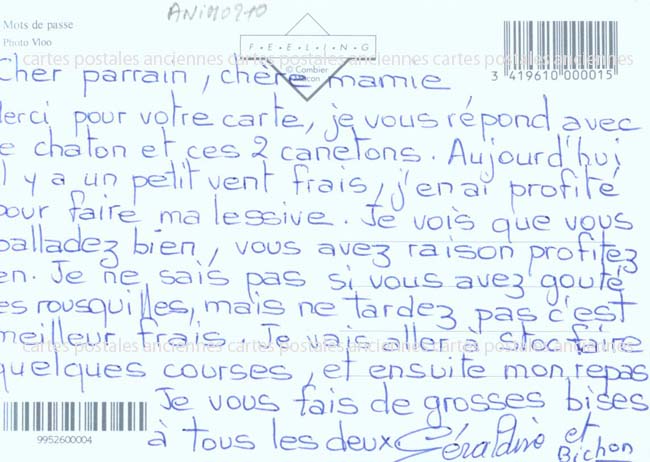 ANIM0970
Mots de passe
Photo Vloo
F·E·E·L·I·N·G
© Combier
Macon
3 419610 000015
cartes postales anciennes cartes postales anciennes cartes postales anciennes
Cher parrain, chère mamie
erci pour votre carte, je vous répond avec
e chaton et ces 2 canetons. Aujourd'hui
l y a un petit vent frais, j'en ai profité
pour faire ma lessive. Je vois que vous
balladez bien, vous avez raison profitez
en. Je ne sais pas si vous avez gouté
es rousquilles, mais ne tardez pas c'est
meilleur frais. Je vais aller à faire
cartes postales anciennes cartes postales anciennes cartes postales anciennes
quelques courses, et ensuite mon repas
Je vous fais de grosses bises
à tous les deux Géraldine et
Bichon
9952600004